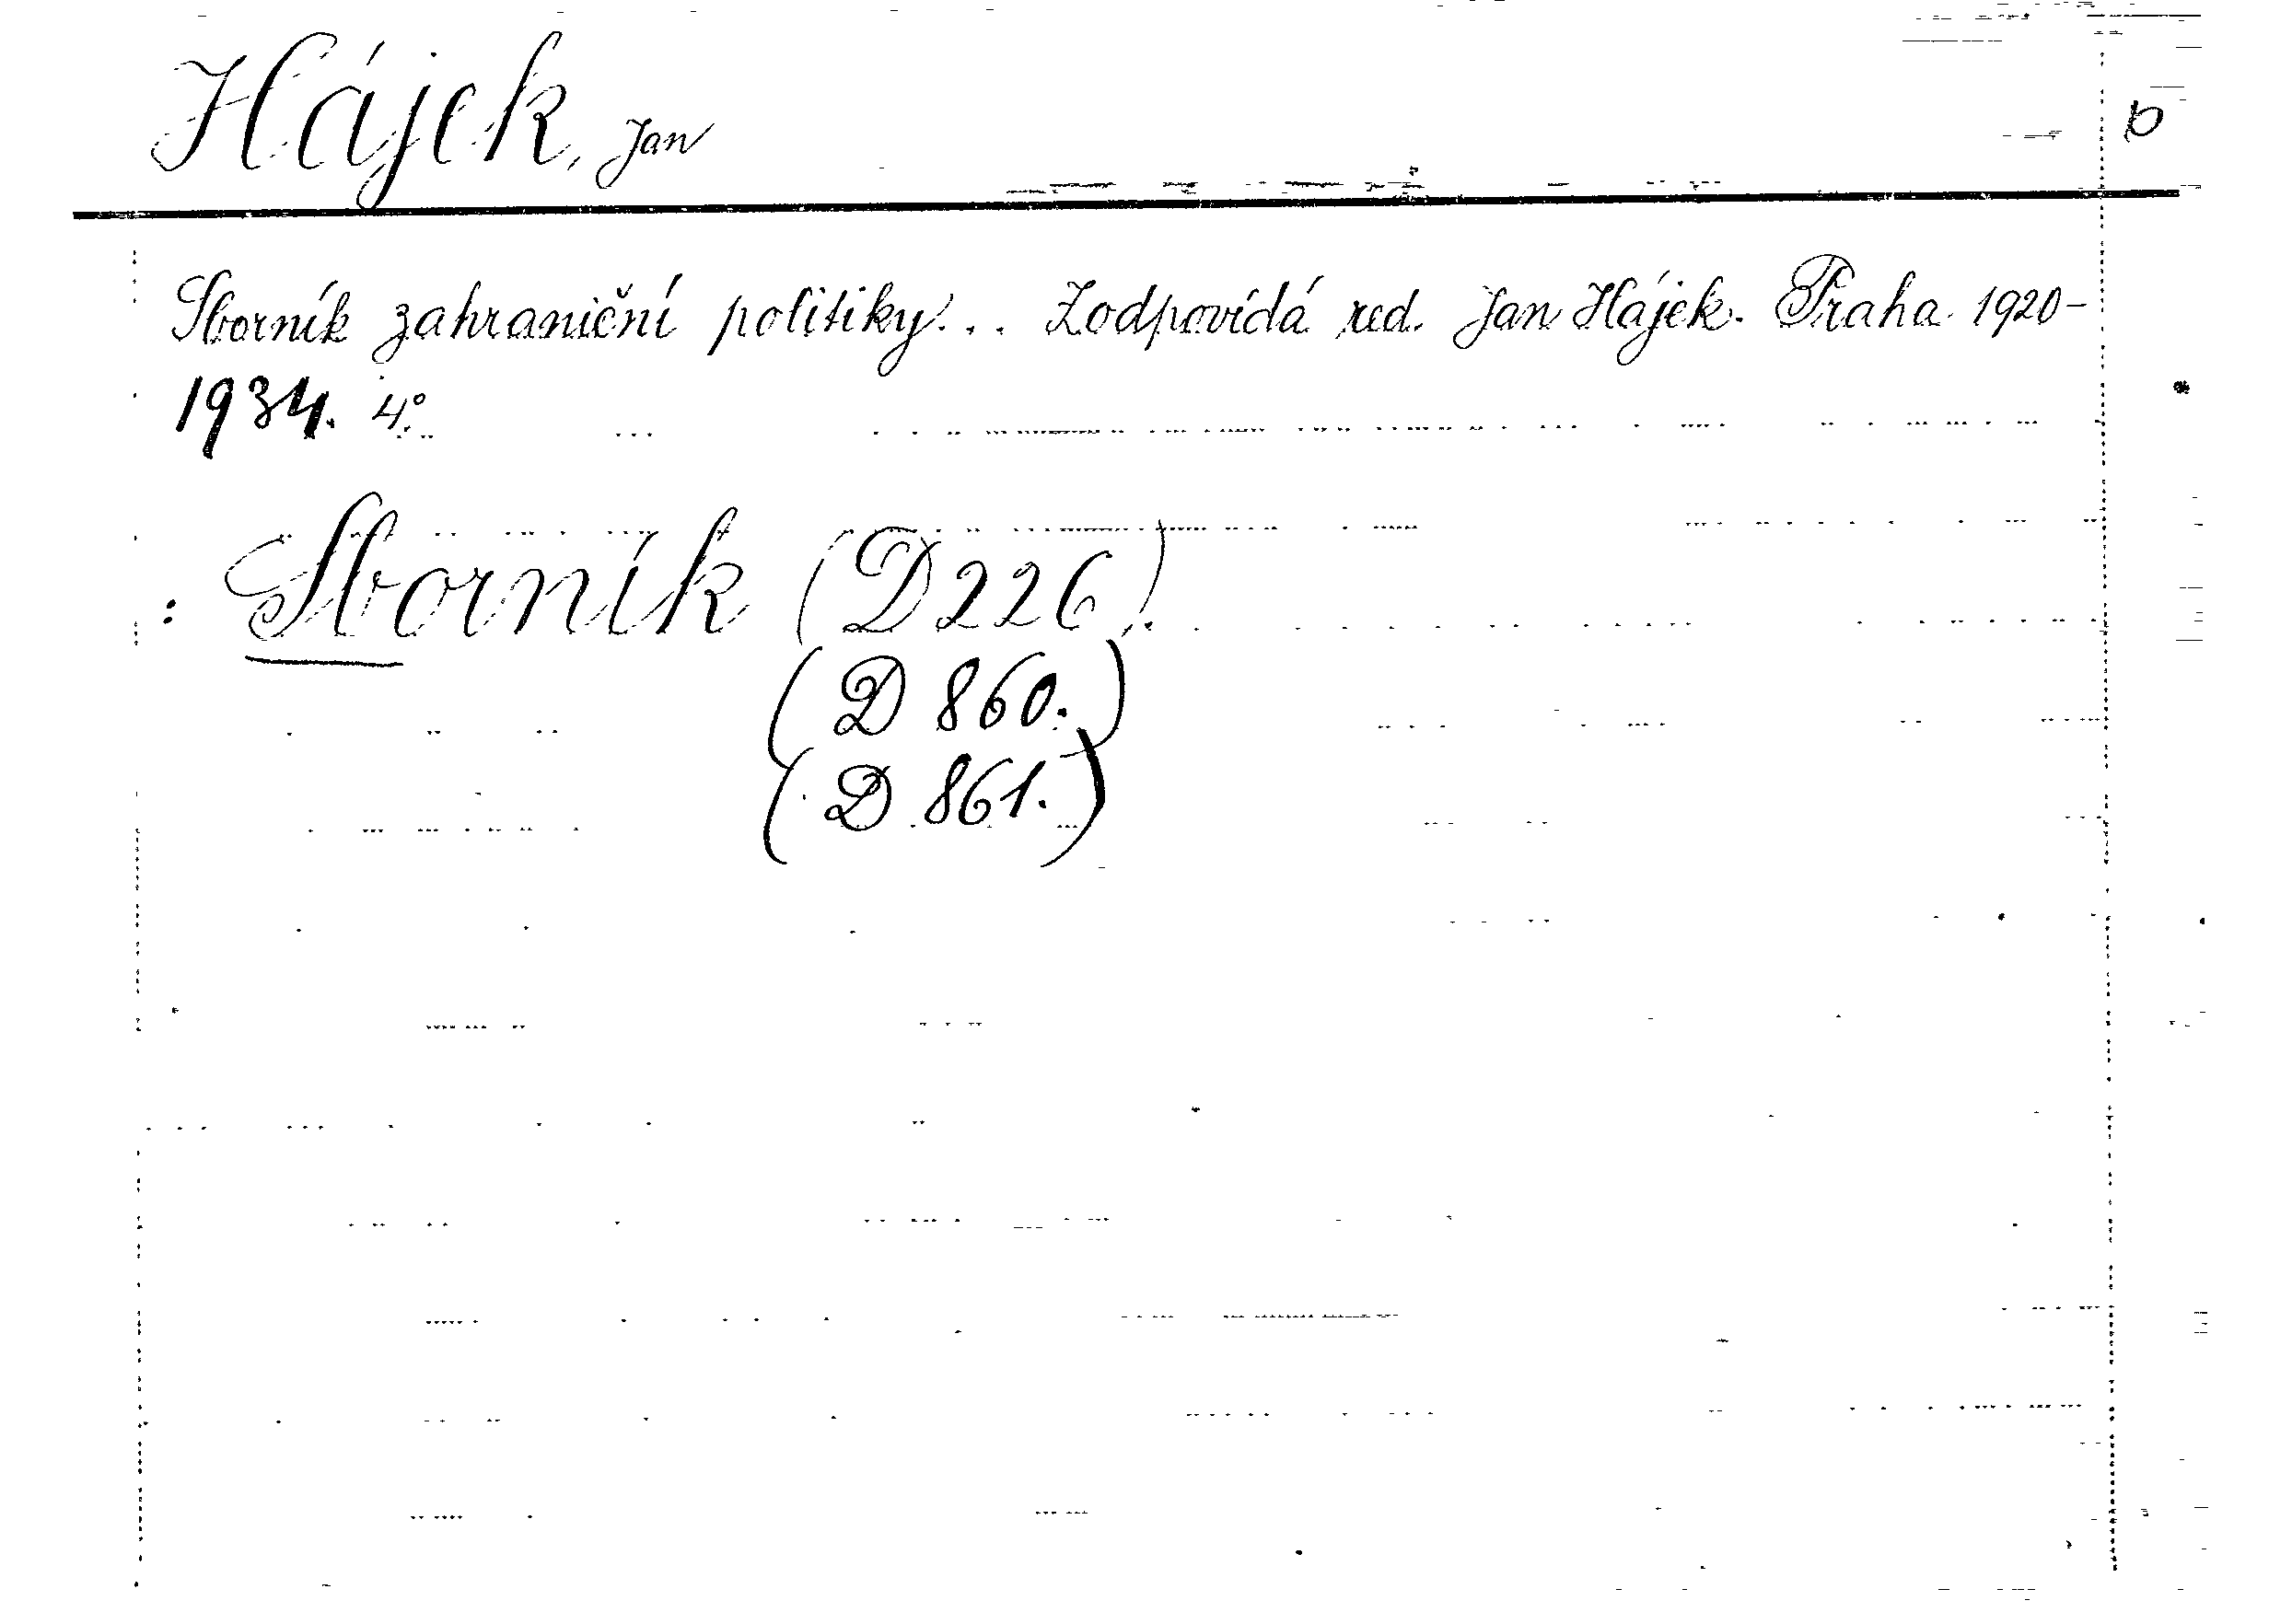 Hájek, Jan
Sborník zahraniční politiky... Zodpovídá red. Jan Hájek. Praha 1920-
1934. 4°.
: Sborník (D 226).
(D 860.)
(D 861.)